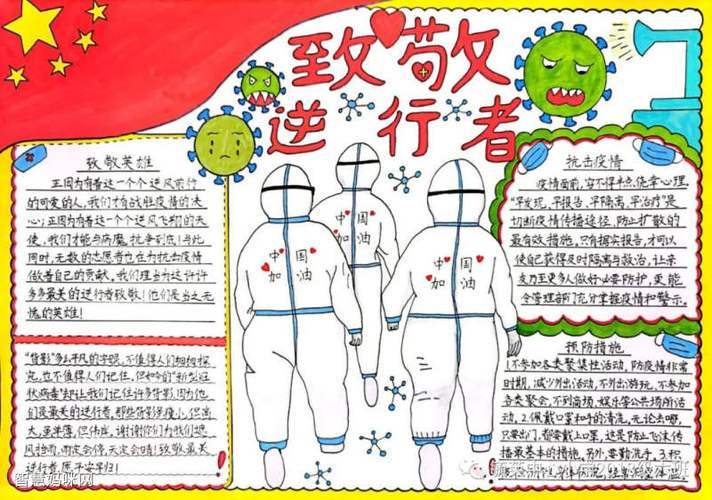 致敬
逆行者
致敬英雄
正因为有着这一个个逆风前行
的可爱的人，我们才有战胜疫情的决
心；正因为有着这一个个逆风飞翔的天
使，我们才能与病魔抗争到底！与此
同时，无数的志愿者也在为抗击疫情
做着自己的贡献，我们理当为这许许
多多最美的逆行者致敬！他们是当之无
愧的英雄！
"背影"多么平凡的字眼，不值得人们细细探
究，也不值得人们记住，但如今的"新型冠
状病毒"却让我们记住许多背影，因为他
们是最美的逆行者，那些背影虽瘦小，但高
大，虽单薄，但伟岸，谢谢你们为我们遮
风挡雨，雨定会停，天定会晴！致敬最美
逆行者，愿平安早归！
中国
加油
中国
加油
中国
加油
抗击疫情
疫情面前，容不得半点侥幸心理，
"早发现，早报告，早隔离，早治疗"是
切断疫情传播途径，防止扩散的
最有效措施，只有拥实报告，才可以
使自己获得及时隔离与救治，让亲
友乃至更多人做好必要防护，更能
令管理部门充分掌握疫情和警示。
预防措施
1.不参加各类聚集性活动，防疫情非常
时期，减少外出活动，不外出游玩，不参加
各类聚会，不到商场，娱乐等公共场所活
动，2.佩戴口罩和手的清洗，无论去哪，
只要出门，都要戴上口罩，这是防止飞沫传
播最基本的措施，另外，要勤洗手，3.积
智慧妈咪网